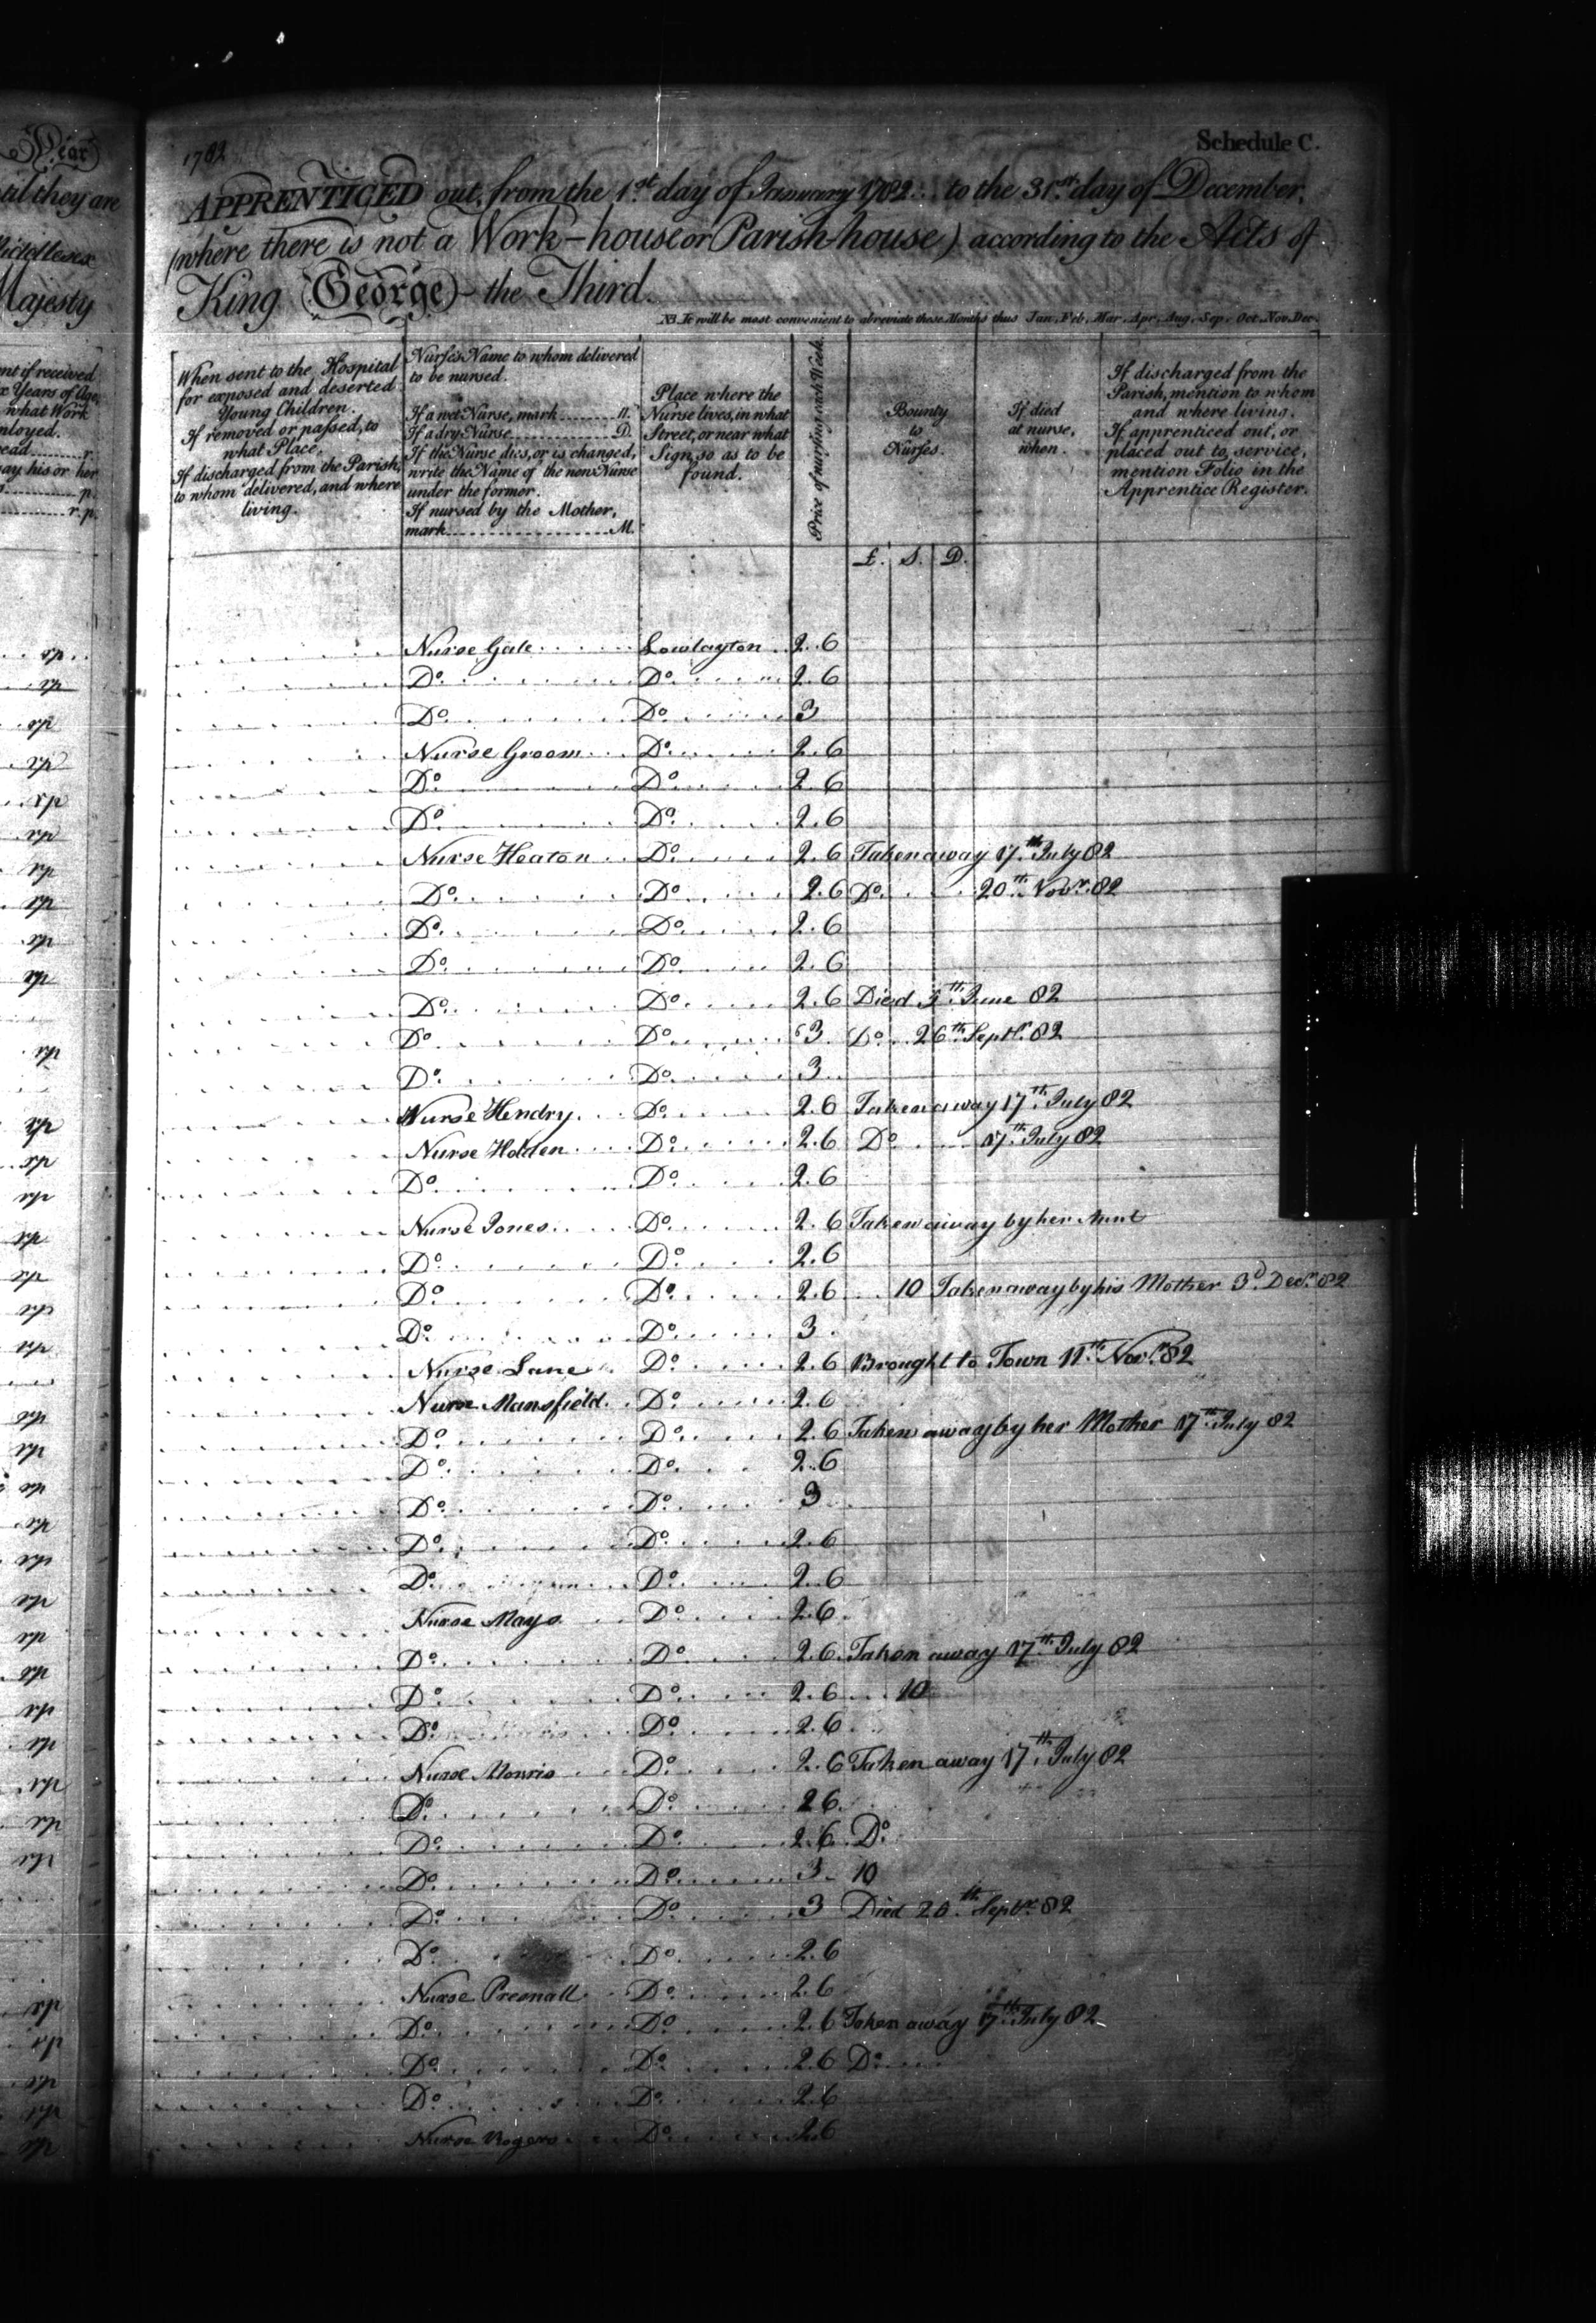 Year
1782
Schedule C.
till they are
APPRENTICED out, from the 1st day of January 1782 to the 31st day of December,
Middlesex
(where there is not a Work-house or Parish-house) according to the Acts of
Majesty
King George the Third.
NB. It will be most convenient to abreviate these Months thus Jan. Feb. Mar. Apr. Aug. Sep. Oct. Nov. Dec.
When sent to the Hospital
for exposed and deserted
Young Children.
If removed or passed, to
what Place.
If discharged from the Parish,
to whom delivered, and where
living.
Nurse's Name to whom delivered
to be nursed.
If a wet Nurse, mark n.
If a dry Nurse D.
If the Nurse dies, or is changed,
write the Name of the new Nurse
under the former.
If nursed by the Mother,
mark M.
Place where the
Nurse lives, in what
Street, or near what
Sign, so as to be
found.
Price of nursing each Week.
Bounty
to
Nurses.
If died
at nurse,
when.
If discharged from the
Parish, mention to whom
and where living.
If apprenticed out, or
placed out to service,
mention Folio in the
Apprentice Register.
£. S. D.
Nurse Gale Lowlayton 2.6
Do. Do. 2.6
Do. Do. 3
Nurse Groom Do. 2.6
Do. Do. 2.6
Do. Do. 2.6
Nurse Heaton Do. 2.6 Taken away 17th July 82
Do. Do. 2.6 Do. 20th Novr. 82
Do. Do. 2.6
Do. Do. 2.6
Do. Do. 2.6 Died June 82
Do. Do. 3 Do. 26th Septr. 82
Do. Do. 3
Nurse Hendry Do. 2.6 Taken away 17th July 82
Nurse Holden Do. 2.6 Do. 17th July 82
Do. Do. 2.6
Nurse Jones Do. 2.6 Taken away by her Aunt
Do. Do. 2.6
Do. Do. 2.6 10 Taken away by his Mother 3d. Decr. 82
Do. Do. 3
Nurse Lane Do. 2.6 Brought to Town 11th Novr. 82
Nurse Mansfield Do. 2.6
Do. Do. 2.6 Taken away by her Mother 17th July 82
Do. Do. 2.6
Do. Do. 3
Do. Do. 2.6
Do. Do. 2.6
Nurse Mayo Do. 2.6
Do. Do. 2.6 Taken away 17th July 82
Do. Do. 2.6 10
Do. Do. 2.6
Nurse Morris Do. 2.6 Taken away 17th July 82
Do. Do. 2.6
Do. Do. 2.6 Do.
Do. Do. 3 10
Do. Do. 3 Died 20th Septr. 82
Do. Do. 2.6
Nurse Presnall Do. 2.6
Do. Do. 2.6 Taken away 17th July 82
Do. Do. 2.6 Do.
Do. Do. 2.6
Nurse Rogers Do. 2.6